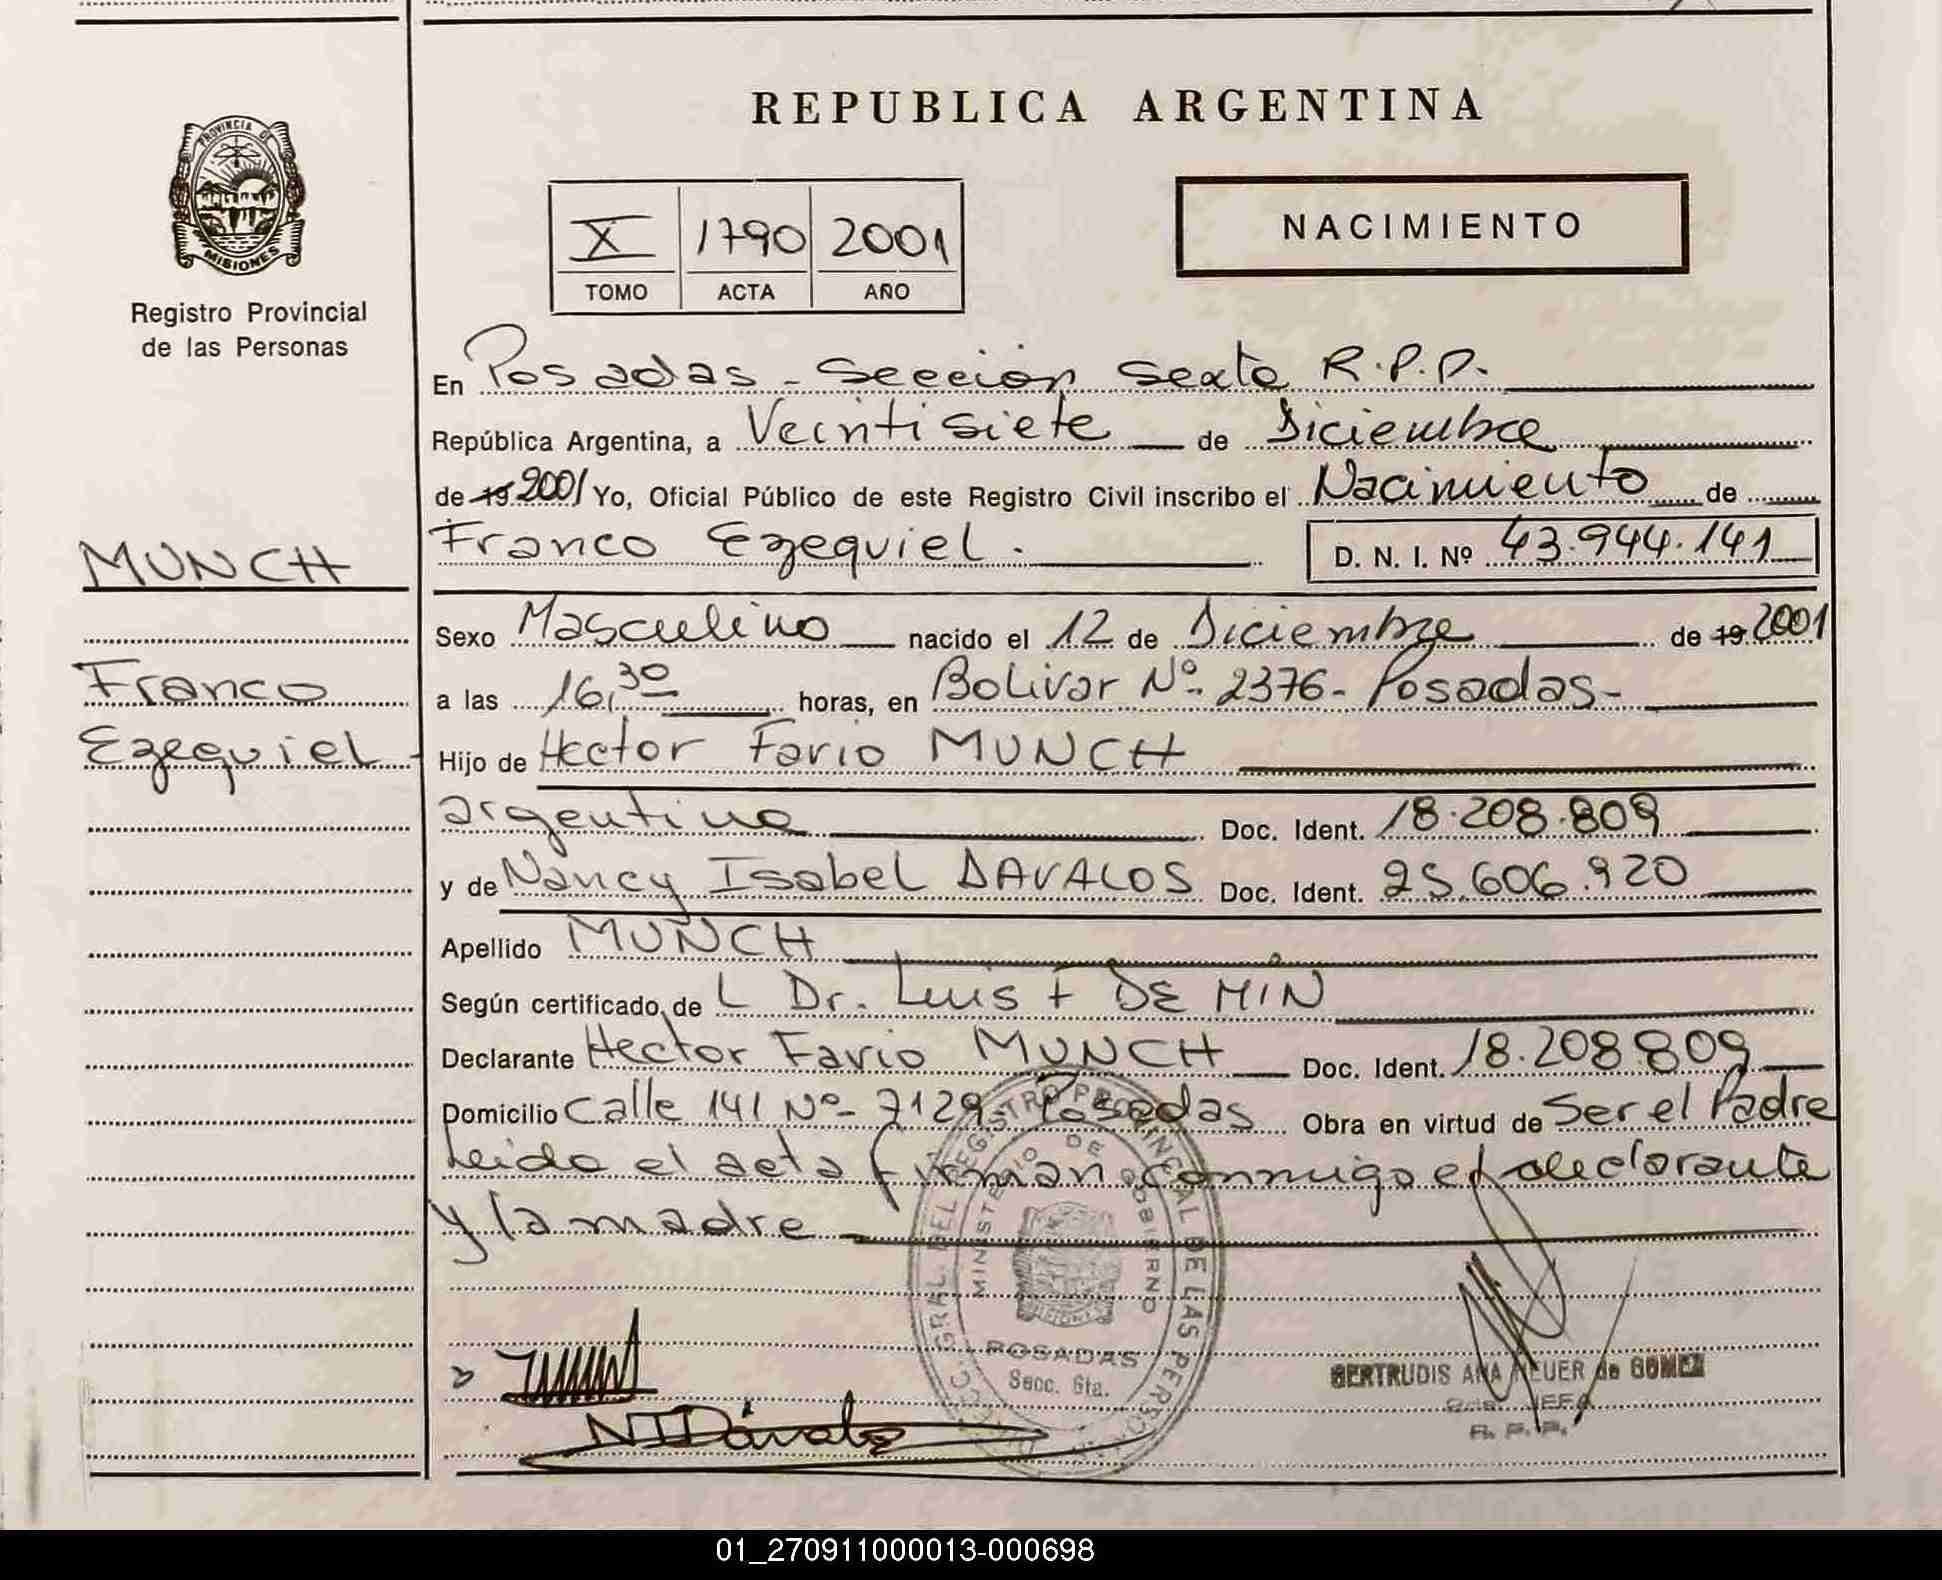 REPUBLICA ARGENTINA
PROVINCIA DE
MISIONES
Registro Provincial
de las Personas
X 1790 2001
TOMO ACTA AÑO
NACIMIENTO
En Posadas - Sección Sexta R.P.P.
República Argentina, a Veintisiete de Diciembre
de 19 2001 Yo, Oficial Público de este Registro Civil inscribo el Nacimiento de
Franco Ezequiel. D. N. I. Nº 43.944.141
MUNCH
Franco
Ezequiel
Sexo Masculino nacido el 12 de Diciembre de 19 2001
a las 16,30 horas, en Bolivar Nº 2376 - Posadas -
Hijo de Hector Favio MUNCH
argentina Doc. Ident. 18.208.809
y de Nancy Isabel DAVALOS Doc. Ident. 25.606.920
Apellido MUNCH
Según certificado de L Dr. Luis F DE MIN
Declarante Hector Favio MUNCH Doc. Ident. 18.208.809
Domicilio Calle 141 Nº 7129 Posadas Obra en virtud de Ser el Padre
Leida el acta firman conmigo el declarante
y la madre
REGISTRO PROVINCIAL DE LAS PERSONAS
MINISTERIO DE GOBIERNO
POSADAS
Secc. 6ta.
NIDávalos
GERTRUDIS ANA de GOMEZ
JEFA
R. P. P.
01_270911000013-000698